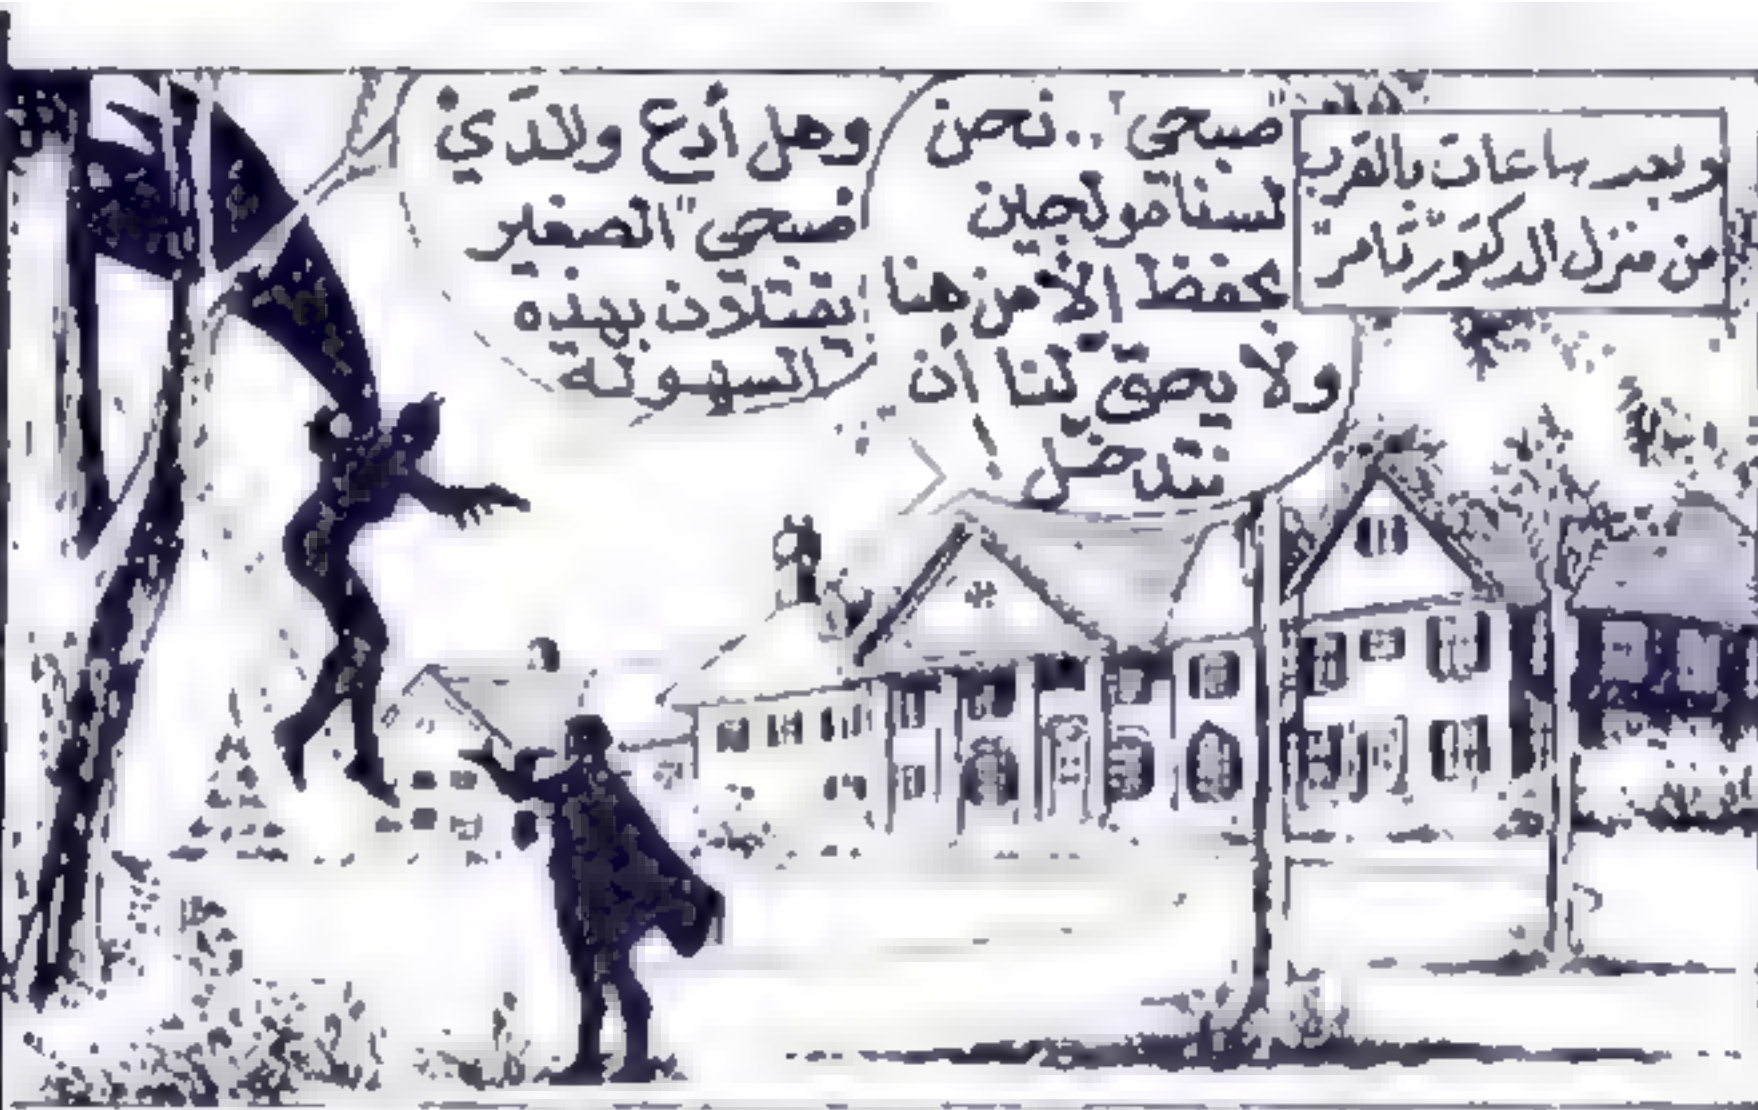 وبعد ساعات بالقرب
من منزل الدكتور "تامر"
"صبحي".. نحن
لسنا مولجين
بحفظ الأمن هنا
ولا يحق لنا أن
نتدخل!
وهل أدع والدَيْ
"صبحي" الصغير
يقتلان بهذه
السهولة